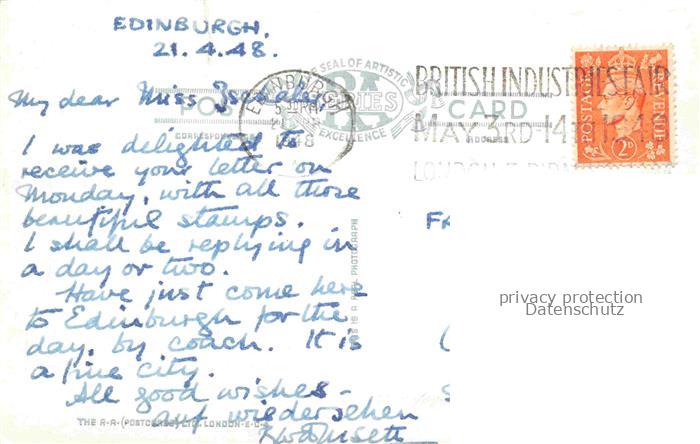 EDINBURGH.
21.4.48.
My dear Miss
I was delighted to
receive your letter on
Monday, with all those
beautiful stamps.
I shall be replying in
a day or two.
Have just come here
to Edinburgh for the
day, by coach. It is
a fine city.
All good wishes -
auf wiedersehen
POST CARD
CORRESPONDENCE ADDRESS
SEAL OF ARTISTIC
EXCELLENCE
RA
SERIES
EDINBURGH
1948
BRITISH INDUSTRIES FAIR
MAY 3RD-14TH 1948
POSTAGE REVENUE
2D
THIS IS A REAL PHOTOGRAPH
THE R.A. (POSTCARDS) LTD. LONDON. E.C.4.
privacy protection
Datenschutz